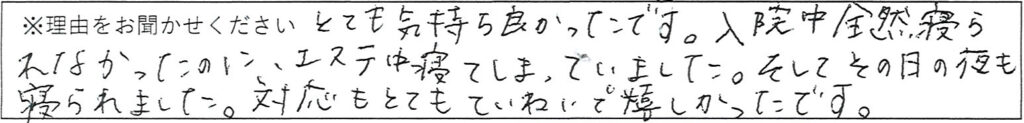 ※理由をお聞かせください とても気持ち良かったです。入院中全然寝ら
れなかったのに、エステ中寝てしまっていました。そしてその日の夜も
寝られました。対応もとてもていねいで嬉しかったです。